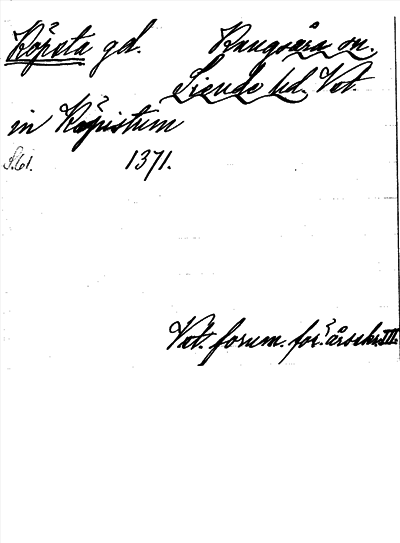 Köpsta gd. Kungsåra sn.
Siende hd. Vst.
in Köpistum
S.61. 1371.
Vst. fornm. för:s årsskr. III.